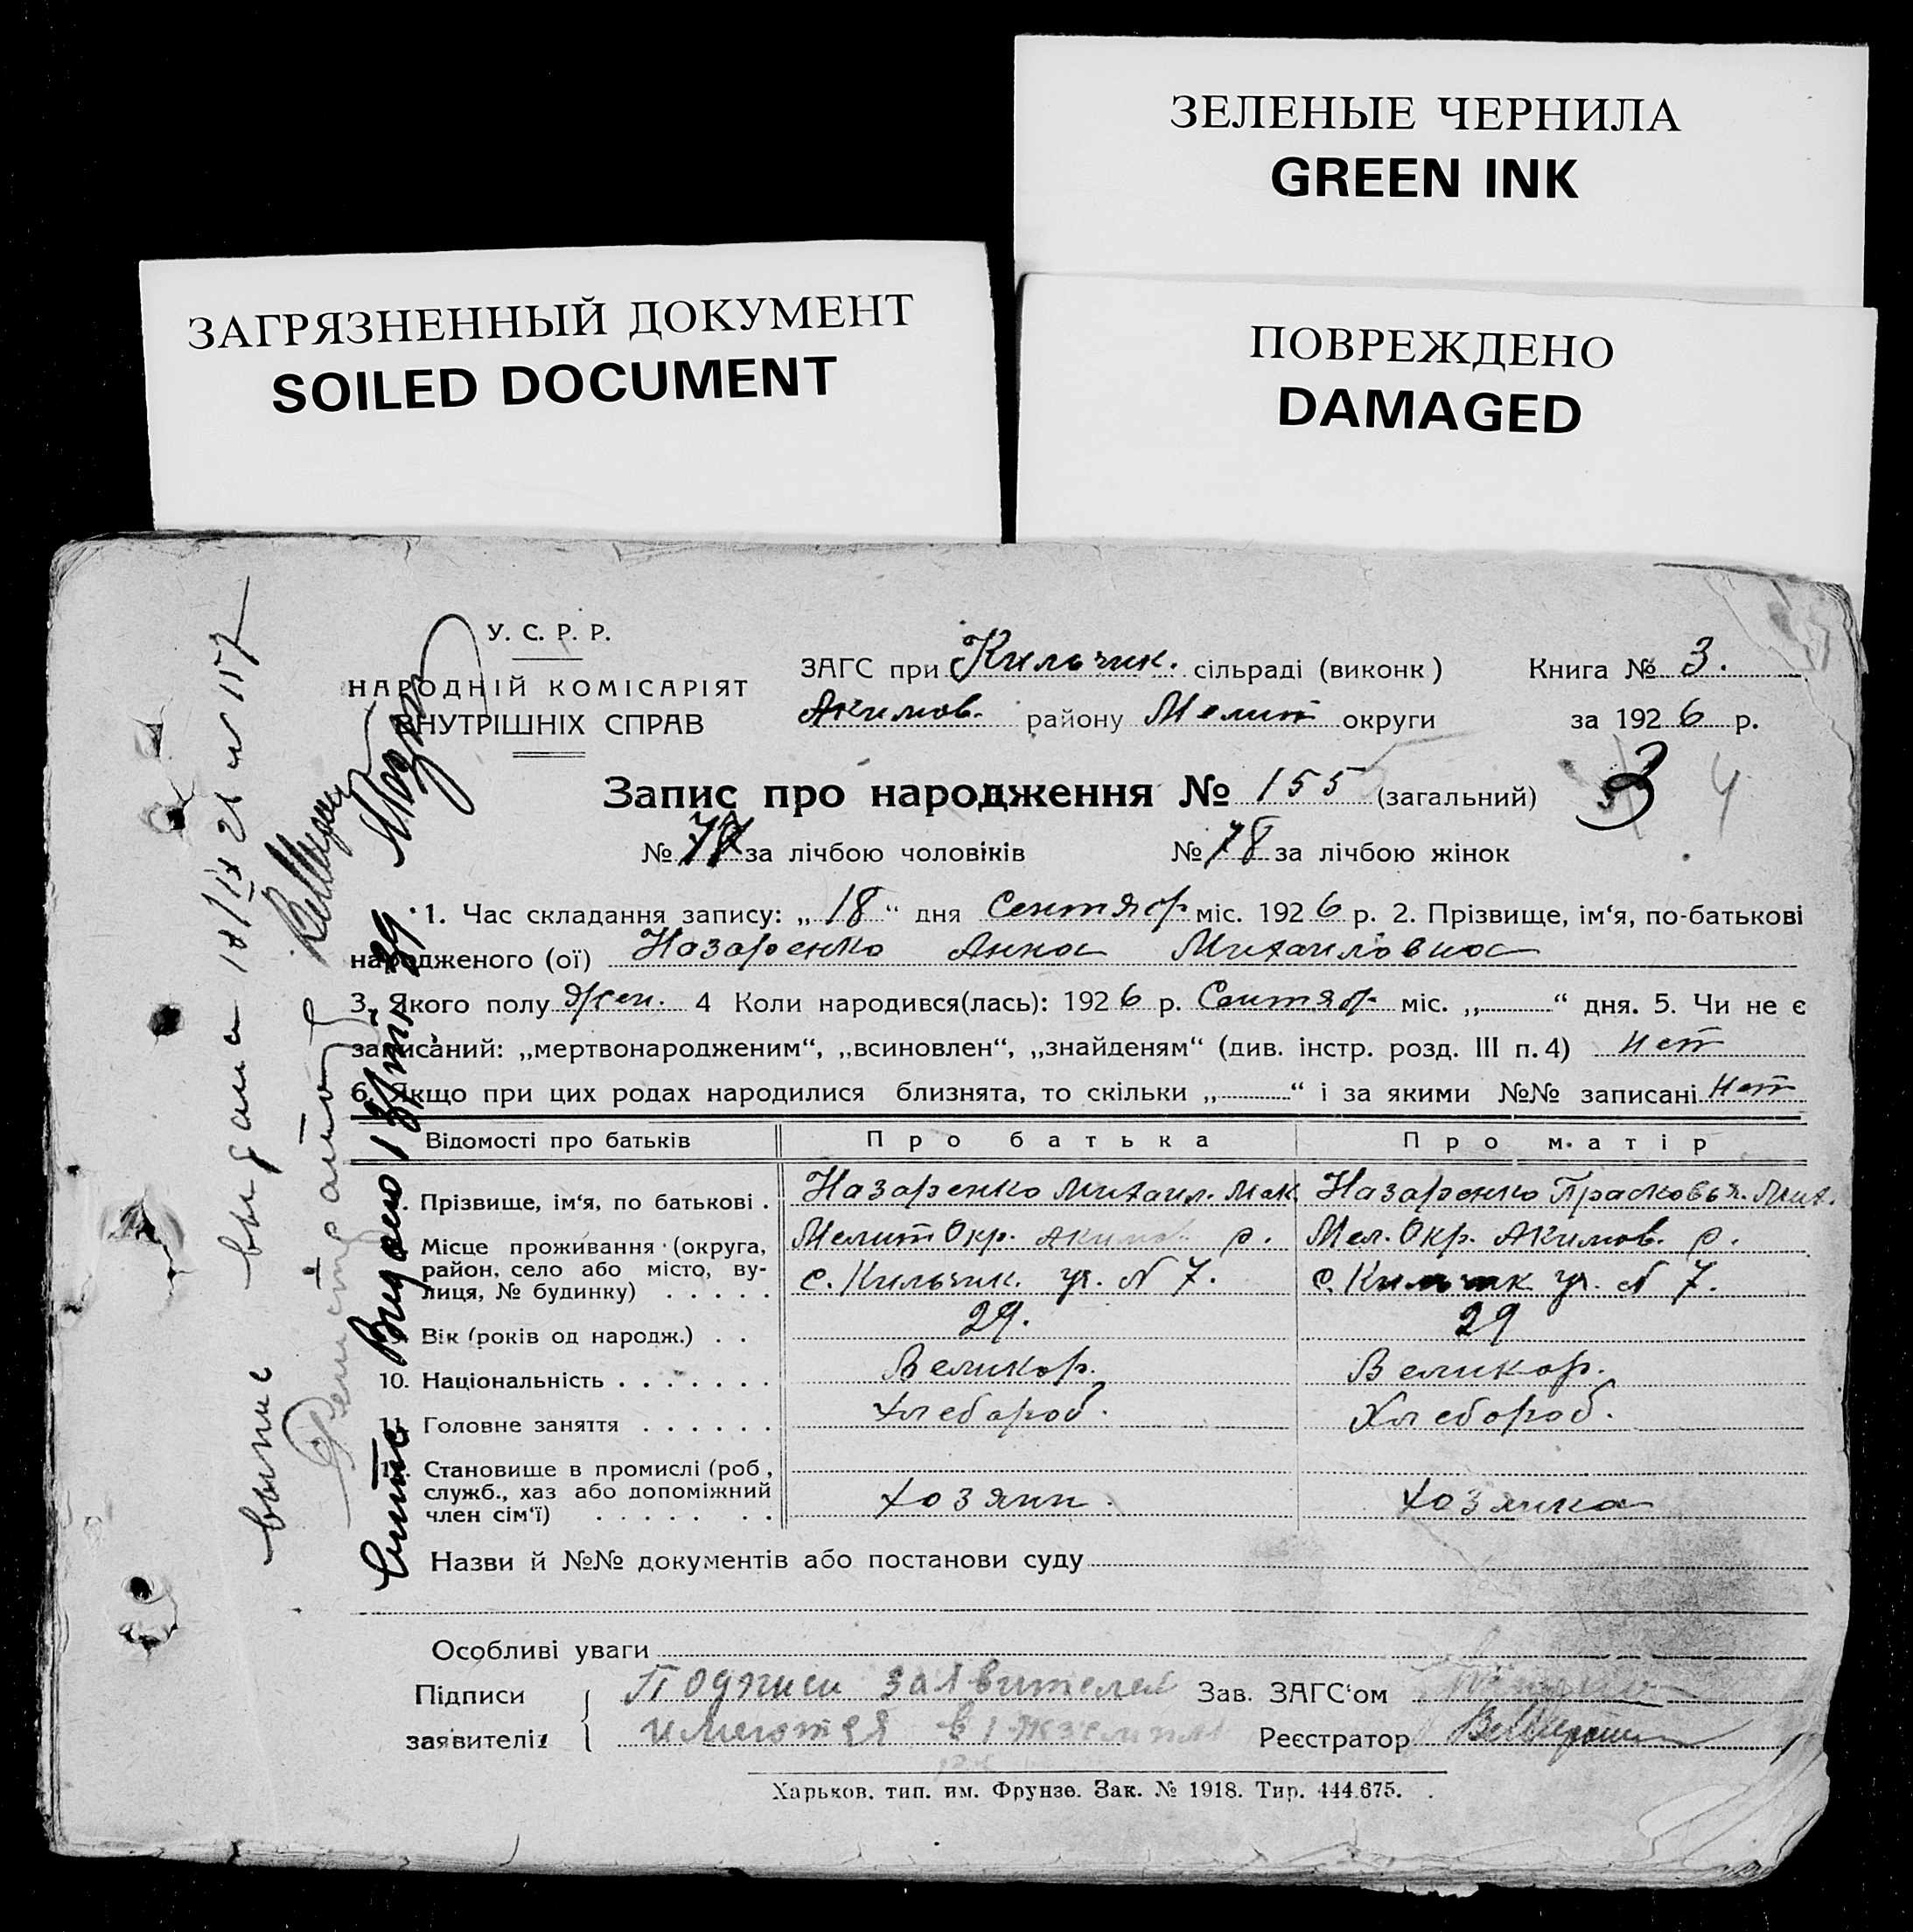 ЗЕЛЕНЫЕ ЧЕРНИЛА
GREEN INK
ЗАГРЯЗНЕННЫЙ ДОКУМЕНТ
SOILED DOCUMENT
ПОВРЕЖДЕНО
DAMAGED
У. С. Р. Р.
НАРОДНІЙ КОМІСАРІЯТ
ВНУТРІШНІХ СПРАВ
ЗАГС при Кильчик. сільраді (виконк)
Акимов. району Мелит округи
Книга № 3.
за 1926 р.
Запис про народження № 155 (загальний)
3 4
№ за лічбою чоловіків № 78 за лічбою жінок
1. Час складання запису: „18“ дня Сентябр міс. 1926 р. 2. Прізвище, ім‘я, по-батькові
народженого (ої) Назаренко Анна Михаиловна
3. Якого полу жен. 4 Коли народився(лась): 1926 р. Сентябр міс. „ “ дня. 5. Чи не є
записаний: „мертвонародженим“, „всиновлен“, „знайденям“ (див. інстр. розд. III п. 4) нет
6. Якщо при цих родах народилися близнята, то скільки „ “ і за якими №№ записані нет
Відомості про батьків Про батька Про матір
Прізвище, ім‘я, по батькові . Назаренко Михаил. Мак Назаренко Прасковья. Мих.
Місце проживання (округа, Мелит Окр. Акимов. р. Мел. Окр. Акимов. р.
район, село або місто, ву-
лиця, № будинку) . . . . . с. Кильчик. уч. N 7. с. Кильчик уч. N 7.
Вік (років од народж.) . . 29. 29
10. Національність . . . . . . . Великор. Великор.
11. Головне заняття . . . . . . Хлебороб. Хлебороб.
12. Становище в промислі (роб.,
служб., хаз або допоміжний
член сім‘ї) . . . . . . . Хозяин. Хозяйка
Назви й №№ документів або постанови суду
Особливі уваги
Підписи Подписи заявителей Зав. ЗАГС‘ом
заявителів имеются в 1 экземпл Реєстратор
Харьков. тип. им. Фрунзе. Зак. № 1918. Тир. 444.675.
выпис выдана 18/IX 26 N 157